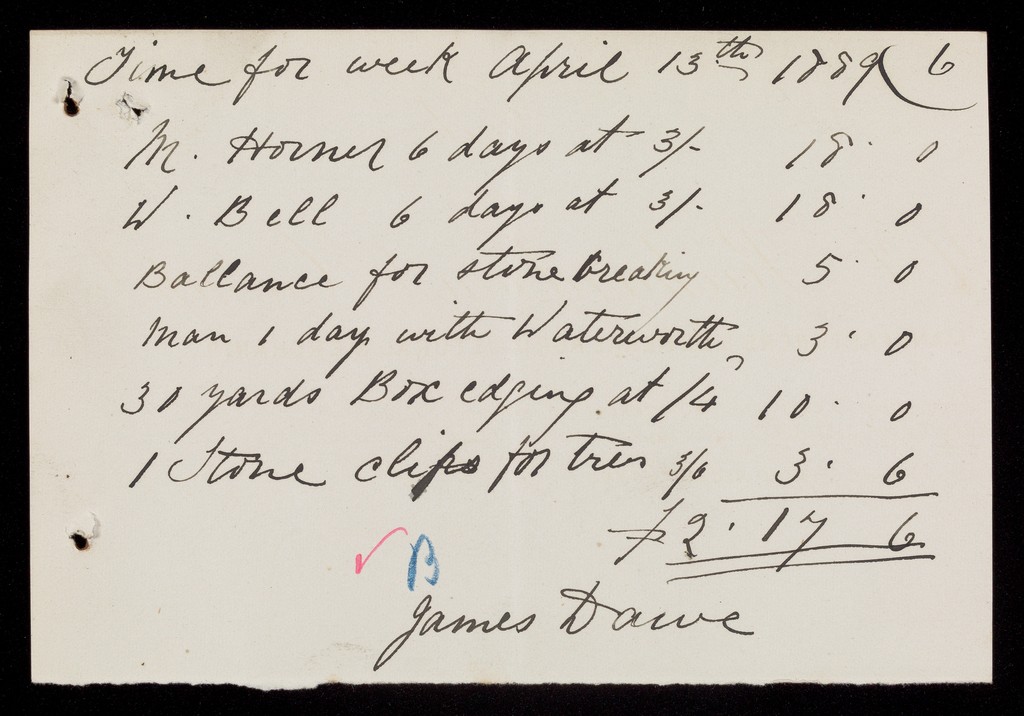 Time for week April 13th 1889 6
M. Horner 6 days at 3/- 18 . 0
W. Bell 6 days at 3/- 18 . 0
Ballance for stone breaking 5 . 0
Man 1 day with Waterworth 3 . 0
30 yards Box edging at /4 10 . 0
1 Stone clips for trees 3/6 3 . 6
£2 . 17 6
B
James Dawe